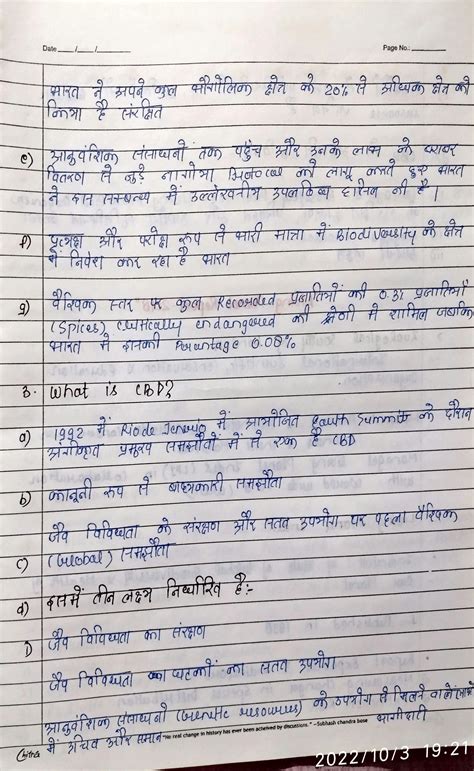 Date ___/___/___ Page No.: ______
भारत ने अपने कुल भौगोलिक क्षेत्र को 20% से अधिक क्षेत्र को
किया है संरक्षित
e) आनुवंशिक संसाधनों तक पहुंच और उनके लाभ को बराबर
वितरण से जुड़े नागोया Protocol को लागू करते हुए भारत
ने इस सम्बन्ध में उल्लेखनीय उपलब्धि हासिल की है।
f) प्रत्यक्ष और परोक्ष रूप से भारी मात्रा में Biodiversity के क्षेत्र
में निवेश कर रहा है भारत
g) वैश्विक स्तर पर कुल Recorded प्रजातियों की 0.3% प्रजातियाँ
(Spices) critically endangered की श्रेणी में शामिल जबकि
भारत में इनकी Percentage 0.08%
3. What is CBD?
a) 1992 में Riode Jenerio में आयोजित Earth Summit के दौरान
अंगीकृत प्रमुख समझौतों में से एक है CBD
b) कानूनी रूप से बाध्यकारी समझौता
जैव विविधता के संरक्षण और सतत उपयोग पर पहला वैश्विक
c) (Global) समझौता
d) इसमें तीन लक्ष्य निर्धारित है:-
i) जैव विविधता का संरक्षण
जैव विविधता के घटकों का सतत उपयोग
आनुवंशिक संसाधनों (Genetic resources) के उपयोग से मिलने वाले
में उचित और समान भागीदारी
Chitra "No real change in history has ever been acheived by discussions." –Subhash chandra bose
2022/10/3 19:21